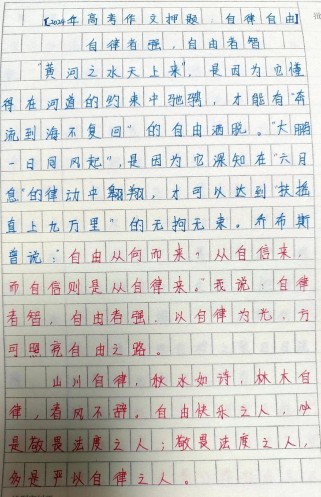 【2024年高考作文押题:自律自由】
自律者强,自由者智
"黄河之水天上来",是因为它懂
得在河道的约束中驰骋,才能有"奔
流到海不复回"的自由洒脱。"大鹏
一日同风起",是因为它深知在"六月
息"的律动中翱翔,才可以达到"扶摇
直上九万里"的无拘无束。乔布斯
曾说:"自由从何而来?从自信来,
而自信则是从自律来。"我说:自律
者智,自由者强,以自律为光,方
可照亮自由之路。
山川自律,秋水如诗,林木自
律,春风不辞。自由快乐之人,必
是敬畏法度之人;敬畏法度之人,
多是严以自律之人。